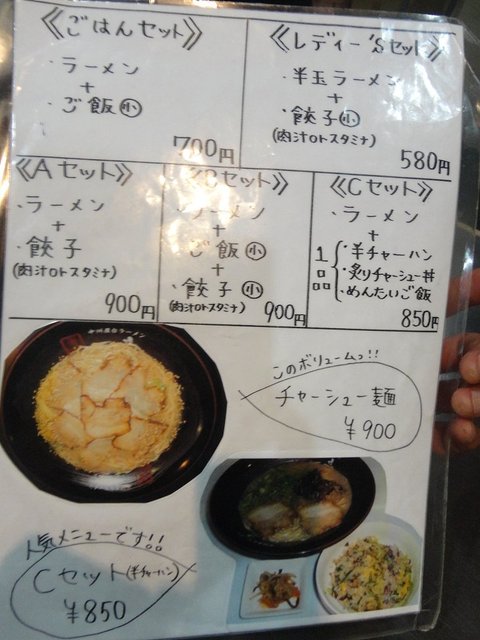 《ごはんセット》
・ラーメン
+
・ご飯(小)
700円
《レディー'Sセット》
・半玉ラーメン
+
・餃子(小)
(肉汁orスタミナ)
580円
《Aセット》
・ラーメン
+
・餃子
(肉汁orスタミナ)
900円
セット》
ラーメン
+
ご飯(小)
+
・餃子(小)
(肉汁orスタミナ)
900円
《Cセット》
・ラーメン
+
1品
・半チャーハン
・炙りチャーシュー丼
・めんたいご飯
850円
このボリュームっ!!
チャーシュー麺
¥900
人気メニューです!!
Cセット(半チャーハン)
¥850